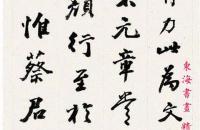 力此為文
米元章嘗
顏行至於
惟蔡君
東海書畫精